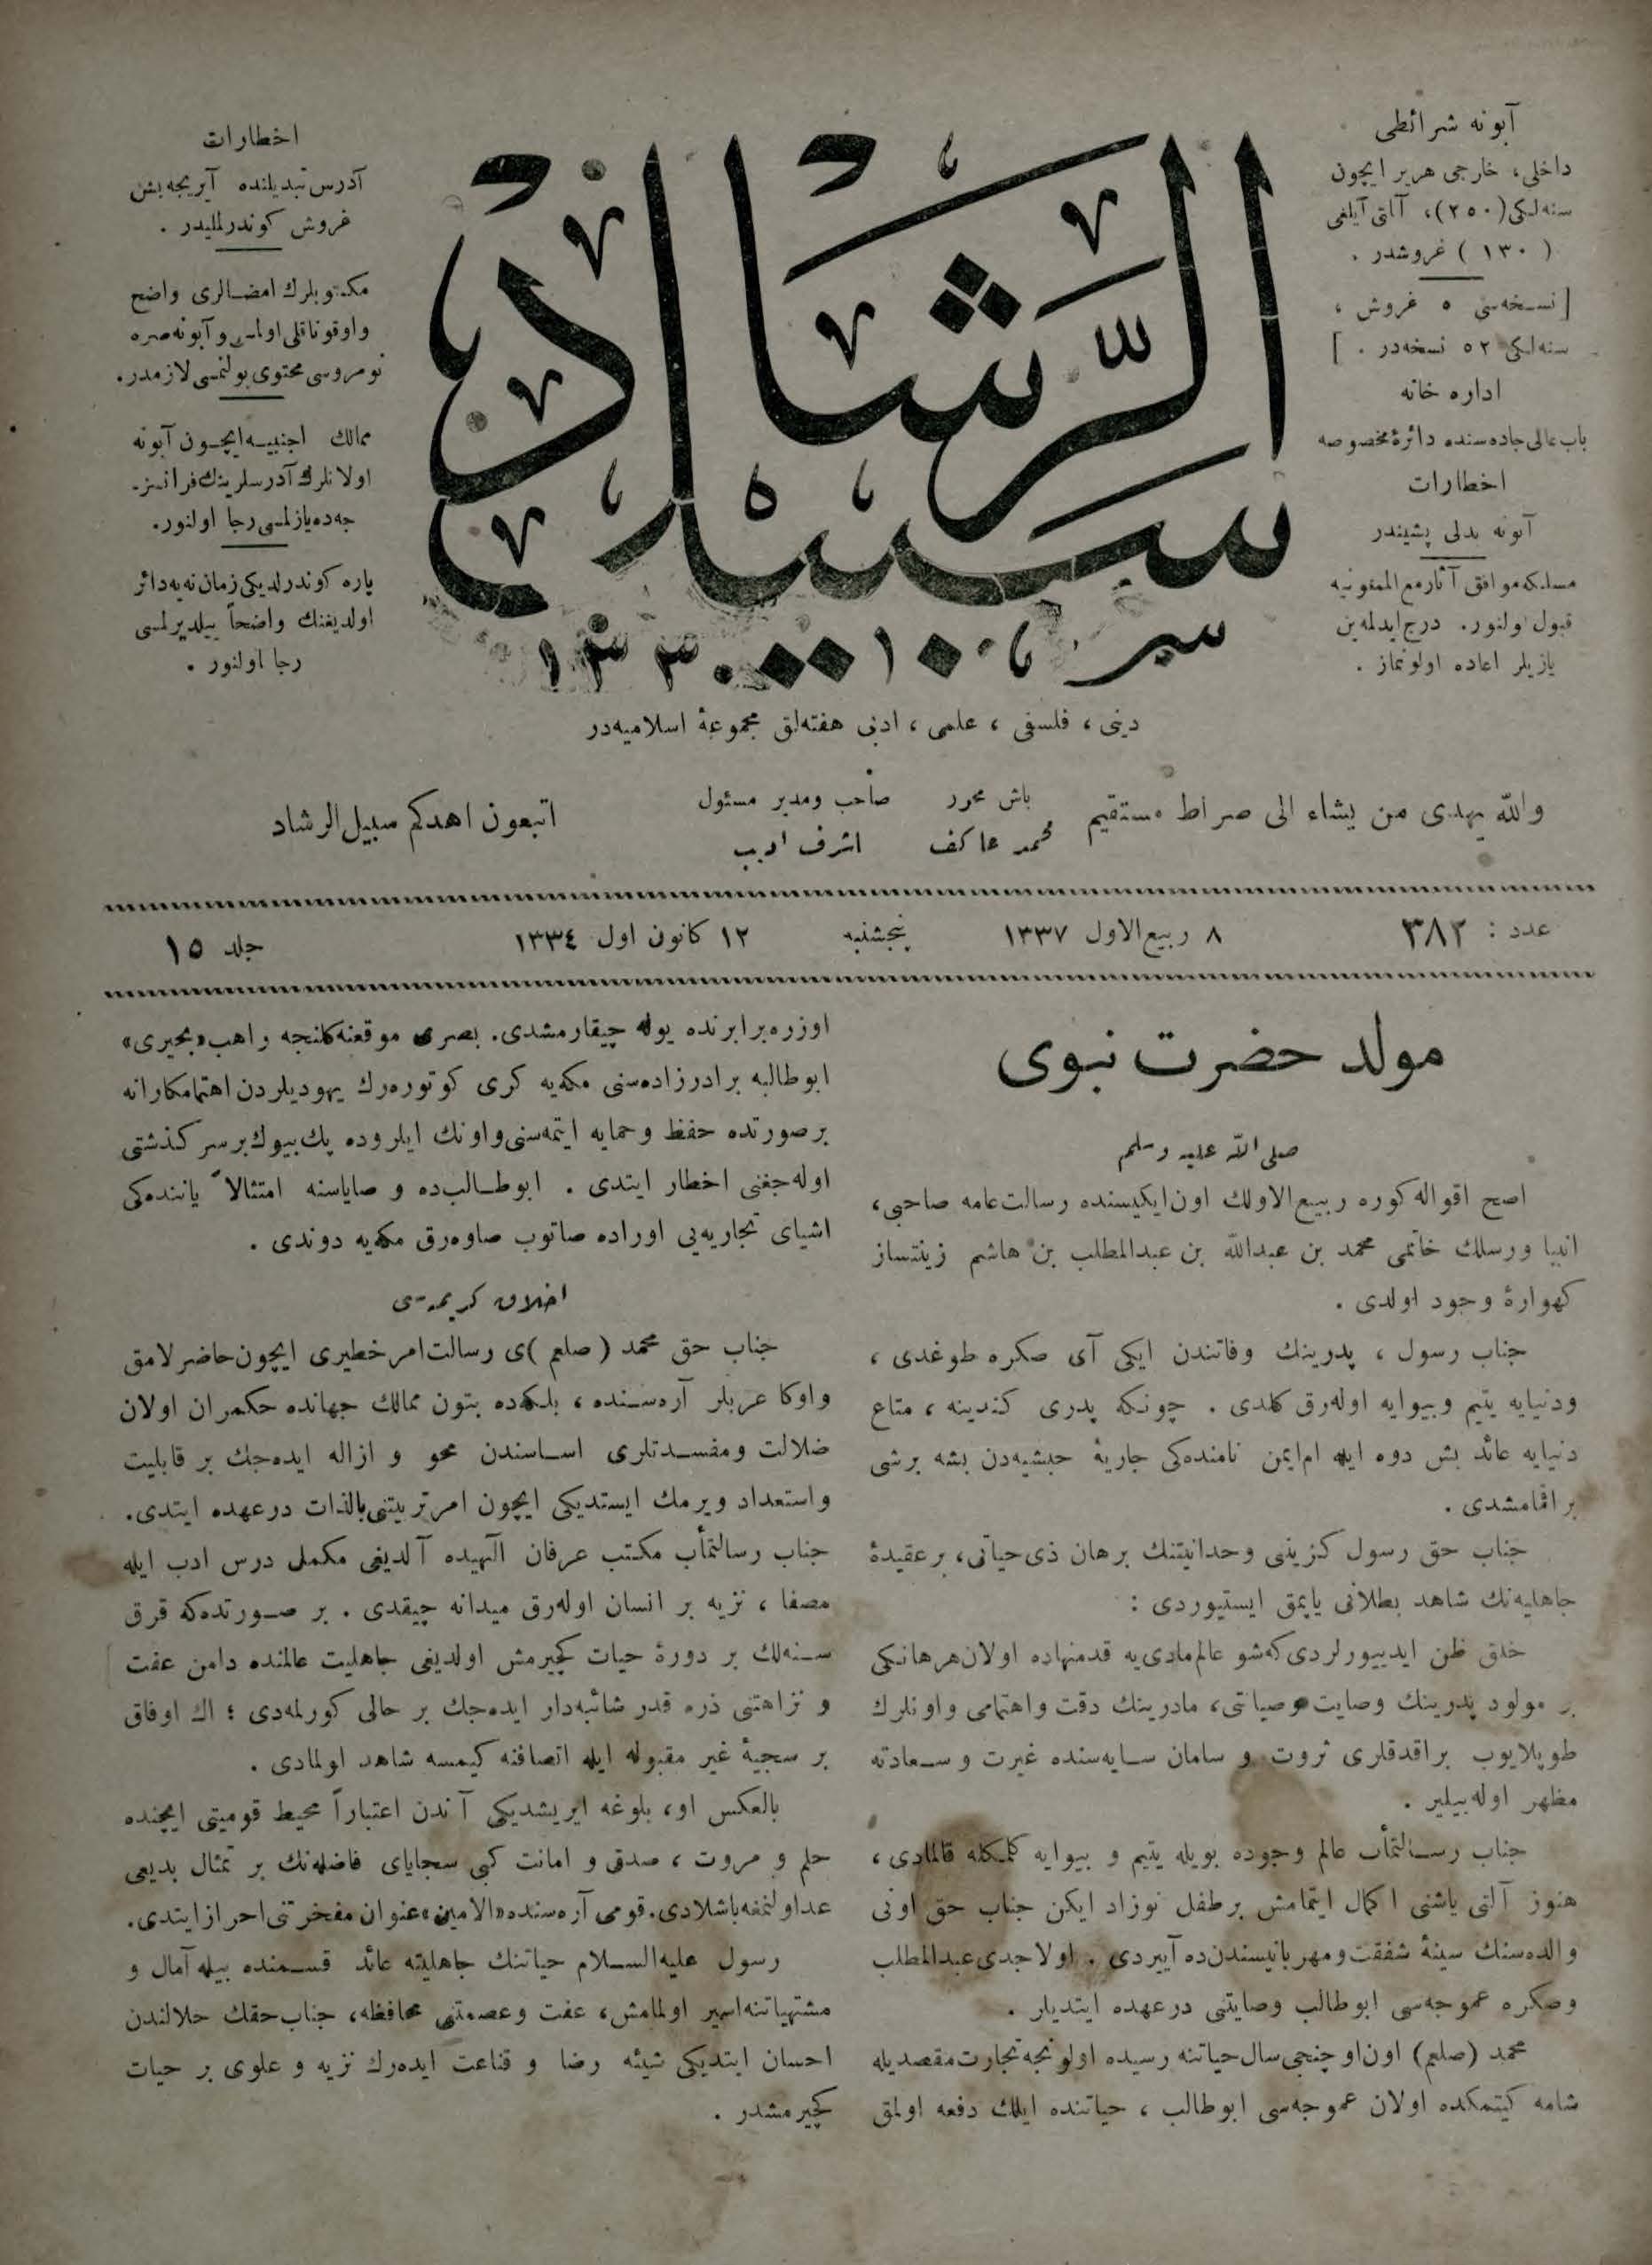 آبونه شرائطی
داخلی، خارجی هر یر ایچون
سنه‌لكی (٢٥٠)، آلتی آیلغی
(١٣٠) غروشدر .
[ نسخه‌سی ٥ غروش ،
سنه‌لكی ٥٢ نسخه‌در . ]
اداره خانه
باب عالی جاده‌سنده دائرۀ مخصوصه
اخطارات
آبونه بدلی پشیندر
مسلكه موافق آثار مع الممنونیه
قبول اولنور. درج ایدلمه‌ین
یازیلر اعاده اولونماز .
سبیل الرشاد
اخطارات
آدرس تبدیلنده آیریجه بش
غروش كوندرلملیدر .
مكتوبلرك امضالری واضح
واوقوناقلی اولمسی و آبونه صره
نومروسی محتوی بولنمسی لازمدر.
ممالك اجنبیه ایچون آبونه
اولانلرك آدرسلرینك فرانسز-
جه‌ده یازلمسی رجا اولنور.
پاره كوندرلدیكی زمان نه‌یه دائر
اولدیغنك واضحاً بیلدیرلمسی
رجا اولنور .
دینی ، فلسفی ، علمی ، ادبی هفته‌لق مجموعۀ اسلامیه‌در
والله یهدی من یشاء الی صراط مستقیم
باش محرر
محمد عاكف
صاحب ومدیر مسئول
اشرف ادیب
اتبعون اهدكم سبیل الرشاد
عدد : ٣٨٢
٨ ربیع الاول ١٣٣٧
پنجشنبه
١٢ كانون اول ١٣٣٤
جلد ١٥
مولد حضرت نبوی
صلی الله علیه وسلم
اصح اقواله كوره ربیع الاولك اون‌ایكیسنده رسالت عامه صاحبی،
انبیا ورسلك خاتمی محمد بن عبدالله بن عبدالمطلب بن هاشم زینتساز
كهوارۀ وجود اولدی .
جناب رسول ، پدرینك وفاتندن ایكی آی صكره طوغدی ،
ودنیایه یتیم وبیوایه اوله‌رق كلدی . چونكه پدری كندینه ، متاع
دنیایه عائد بش دوه ایله ام‌ایمن نامنده‌كی جاریۀ حبشیه‌دن بشه برشی
براقمامشدی .
جناب حق رسول كزینی وحدانیتنك برهان ذی‌حیاتی، برعقیدۀ
جاهلیه‌نك شاهد بطلانی یاپمق ایستیوردی :
خلق ظن ایدییورلردی كه شو عالم مادی‌یه قدمنهاده اولان هرهانكی
بر مولود پدرینك وصایت وصیانتی، مادرینك دقت واهتمامی واونلرك
طوپلایوب براقدقلری ثروت و سامان سایه‌سنده غیرت وسعادته
مظهر اوله‌بیلیر .
جناب رسالتمأب عالم وجوده بویله یتیم و بیوایه كلمكله قالمادی ،
هنوز آلتی یاشنی اكمال ایتمامش برطفل نوزاد ایكن جناب حق اونی
والده‌سنك سینۀ شفقت ومهربانیسندن‌ده آییردی . اولا جدی عبدالمطلب
وصكره عموجه‌سی ابوطالب وصایتنی درعهده ایتدیلر .
محمد (صلعم) اون‌اوچنجی سال حیاتنه رسیده اولونجه تجارت مقصدیله
شامه كیتمكده اولان عموجه‌سی ابوطالب ، حیاتنده ایلك دفعه اولمق
اوزره برابرنده یوله چیقارمشدی. بصری موقعنه كلنجه راهب «بحیری»
ابوطالبه برادرزاده‌سنی مكه‌یه كری كوتوره‌رك یهودیلردن اهتمامكارانه
برصورتده حفظ وحمایه ایتمه‌سنی واونك ایلروده پك‌بیوك برسركذشتی
اوله‌جغنی اخطار ایتدی . ابوطالب‌ده وصایاسنه امتثالاً یاننده‌كی
اشیای تجاریه‌یی اوراده صاتوب صاوه‌رق مكه‌یه دوندی .
اخلاق كریمه‌سی
جناب حق محمد (صلعم)ی رسالت امر خطیری ایچون حاضرلامق
واوكا عربلر آره‌سنده ، بلكه‌ده بتون ممالك جهانده حكمران اولان
ضلالت ومفسدتلری اساسندن محو و ازاله ایده‌جك بر قابلیت
واستعداد ویرمك ایستدیكی ایچون امر تربیتنی بالذات درعهده ایتدی.
جناب رسالتمأب مكتب عرفان الهیده آلدیغی مكمل درس ادب ایله
مصفا ، نزیه بر انسان اوله‌رق میدانه چیقدی . بر صورتده‌كه قرق
سنه‌لك بر دورۀ حیات كچیرمش اولدیغی جاهلیت عالمنده دامن عفت
و نزاهتنی ذره قدر شائبه‌دار ایده‌جك بر حالی كورلمه‌دی ؛ اك اوفاق
بر سجیۀ غیر مقبوله ایله اتصافنه كیمسه شاهد اولمادی .
بالعكس او، بلوغه ایریشدیكی آندن اعتباراً محیط قومیتی ایچنده
حلم و مروت ، صدق و امانت كبی سجایای فاضله‌نك بر تمثال بدیعی
عد اولنمغه باشلادی. قومی آره‌سنده «الامین» عنوان مفخرتنی احراز ایتدی.
رسول علیه السلام حیاتنك جاهلیته عائد قسمنده بیله آمال و
مشتهیاتنه اسیر اولمامش، عفت وعصمتنی محافظه، جناب حقك حلالندن
احسان ایتدیكی شیئه رضا و قناعت ایده‌رك نزیه و علوی بر حیات
كچیرمشدر .